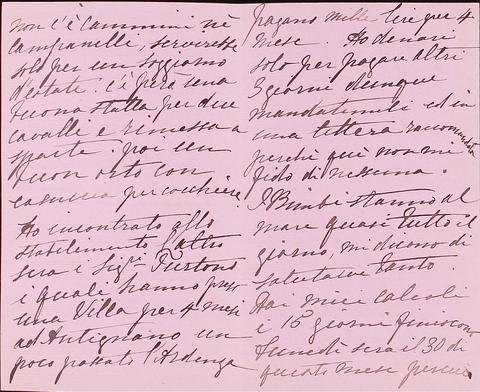 non c'è cammini nè
campanelli, servirebbe
solo per un soggiorno
d'estate. c'è però una
buona stalla per due
cavalli e rimessa a
parte poi un
buon orto con
casuccia per cocchiere
Ho incontrato allo
stabilimento l'altra
sera i Sigi
i quali hanno preso
una Villa per 4 mesi
ad Antignano un
poco passato l'Ardenza
pagano mille lire per 4
mesi. Ho denari
solo per pagare altri
3 giorni dunque
mandatemili ed in
una lettera raccomandata
perchè qui non mi
fido di nessuno.
I Bimbi stanno al
mare quasi tutto il
giorno, mi dicono di
salutarvi tanto.
Dai miei calcoli
i 15 giorni finiscono
Lunedì sera il 30 di
questo mese perciò